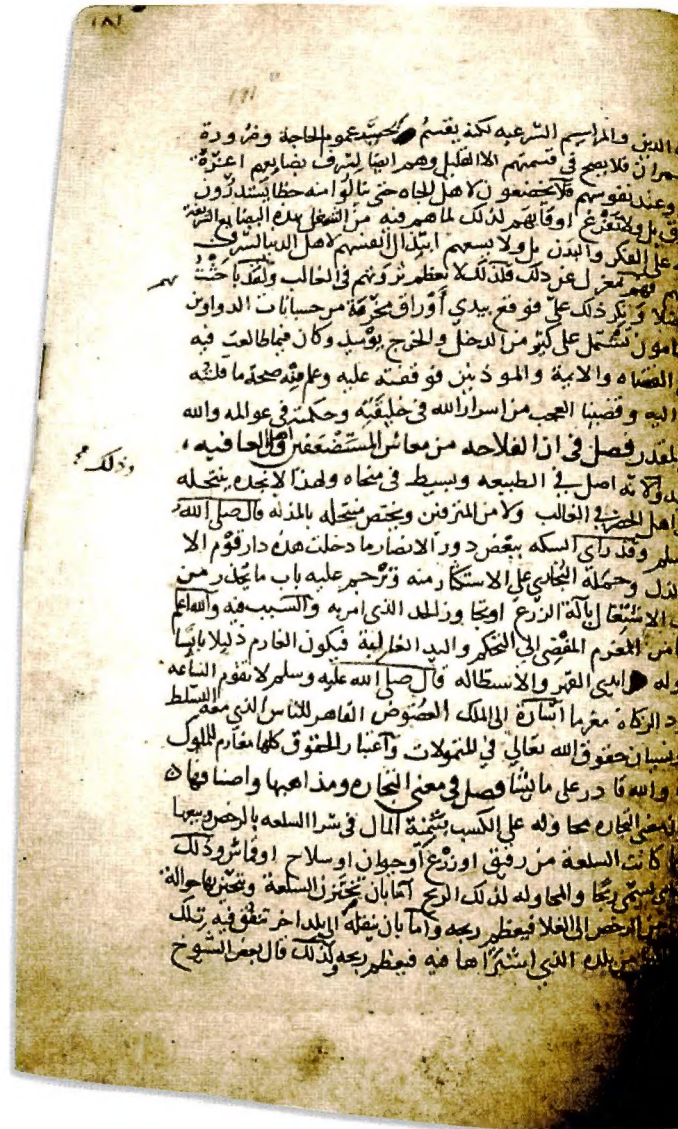 ١٨١
١٨١
الدين والمراسيم الشرعيه لكنه يقسم بحسب عموم الحاجة وضرورة
عمران فلا يصح في قسمتهم الا القليل وهم ايضا لشرف بضايعهم اعزة
وعند نفوسهم فلا يخضعون لاهل الجاه حتى ينالوا منه حظا يستدرّون
بل ولا تفرغ اوقاتهم لذلك لماهم فيه من الشغل بهذه البضايع الشريفة
على الفكر والبدن بل ولا يسعهم ابتذال انفسهم لاهل الدنيا لشرف
فهم بمعزل عن ذلك فلذلك لا تعظم ثروتهم في الغالب ولقد باحثت
فضلا وانكر ذلك عليّ فوقع بيدي أوراق مخرّمة من حسابات الدواوين
مامون تشتمل على كثير من الدخل والخرج يوميذ وكان فيما طالعت فيه
القضاه والايمة والموذنين فوقفته عليه وعلم منه صحة ما قلته
اليه وقضينا العجب من اسرار الله في خليقته وحكمته في عوالمه والله
المقدر فصل في ان الفلاحه من معاش المستضعفين واهل العافيه ،
وذلك
ولانه اصل في الطبيعه وبسيط في منحاه ولهذا لا تجده ينتحله
اهل الحضر في الغالب ولا من المترفين ويختص منتحله بالمذله قال صلى الله
وقد راى السكه ببعض دور الانصار ما دخلت هذه دار قوم الا
الذل وحمله البخاري على الاستكثار منه وترجم عليه باب ما يحذر من
الاشتغال بآلة الزرع او تجاوز الحد الذي امر به والسبب فيه والله اعلم
من المغرم المفضي الى التحكم واليد العالية فيكون الغارم ذليلا بايسا
ايدي القهر والاستطاله قال صلى الله عليه وسلم لا تقوم الساعه
الزكاه مغرما اشارة الى الملك العضوض القاهر للناس الذي معه التسلط
ونسيان حقوق الله تعالى في المتمولات واعتبار الحقوق كلها مغارم للملوك
والله قادر على ما يشا فصل في معنى التجاره ومذاهبها واصنافها
معنى التجاره محاوله على الكسب بتنمية المال في شرا السلعه بالرخص وبيعها
كانت السلعة من رقيق او زرع أو حيوان او سلاح او قماش وذلك
يسمى ربحا والمحاوله لذلك الربح امّا بان تختزن السلعة وتتحيّن بها حوالة
من الرخص الى الغلا فيعظم ربحه وامّا بان ينقله الى بلد اخر تنفق فيه تلك
من بلده الذي اشتراها فيه فيعظم ربحه ولذلك قال بعض الشيوخ